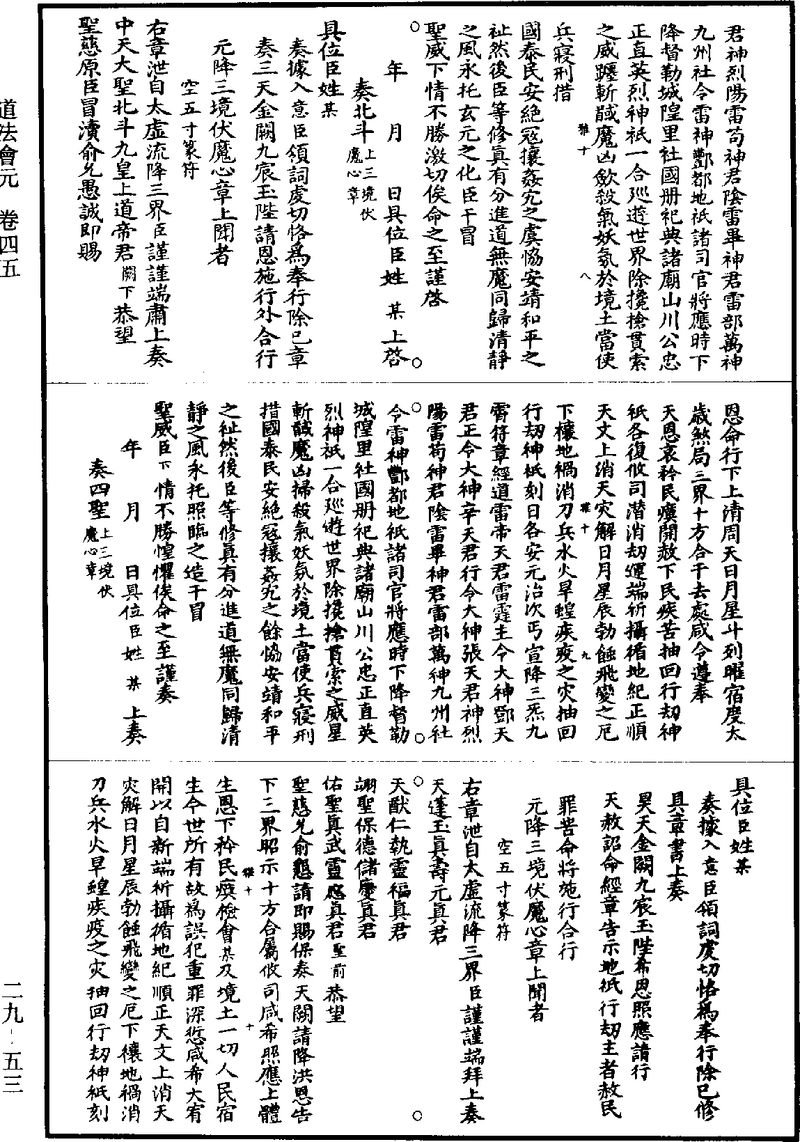 道法會元　卷四五
二九・五三
君神烈陽雷苟神君陰雷畢神君雷部萬神
九州社令雷神酆都地祇諸司官將應時下
降督勒城隍里社國册祀典諸廟山川公忠
正直英烈神祇一合巡遊世界除攙搶貫索
之威躔斬馘魔凶歛殺氣妖氛於境土當使
兵寢刑措
雅十　八
國泰民安絕寇攘姦宄之虞恊安靖和平之
祉然後臣等修真有分進道無魔同歸清靜
之風永托玄元之化臣干冒
聖威下情不勝激切俟命之至謹啓
年　月　日具位臣姓　某　上啓
奏北斗上三境伏魔心章
具位臣姓某
奏據入意臣領詞虔切恪爲奉行除已章
奏三天金闕九宸玉陛請恩施行外合行
元降三境伏魔心章上聞者
空五寸篆符
右章泄自太虛流降三界臣謹謹端肅上奏
中天大聖北斗九皇上道帝君闕下恭望
聖慈原臣冒瀆俞允愚誠即賜
恩命行下上清周天日月星斗列曜宿度太
歲煞局三界十方合干去處咸令遵奉
天恩哀矜民瘼開赦下民疾苦抽回行刼神
祇各復攸司潛消刧運端祈攝循地紀正順
天文上消天灾解日月星辰勃蝕飛變之厄
下禳地禍消刀兵水火旱蝗疾疫之灾抽回
雅十　九
行刼神祇刻日各安元治次丐宣降三炁九
霄符章經道雷帝天君雷霆主令大神鄧天
君正令大神辛天君行令大神張天君神烈
陽雷苟神君陰雷畢神君雷部萬神九州社
令雷神酆都地祇諸司官將應時下降督勒
城隍里社國册祀典諸廟山川公忠正直英
烈神祇一合巡遊世界除攙搶貫索之威星
斬馘魔凶掃殺氣妖氛於境土當使兵寢刑
措國泰民安絕寇攘姦宄之餘恊安靖和平
之祉然後臣等修真有分進道無魔同歸清
靜之風永托照臨之造干冒
聖威臣下情不勝惶懼俟命之至謹奏
年　月　日具位臣姓　某　上奏
奏四聖上三境伏魔心章
具位臣姓某
奏據入意臣領詞虔切恪爲奉行除已修
具章書上奏
昊天金闕九宸玉陛希恩照應請行
天赦詔命經章告示地祇行刼主者赦民
罪苦命將施行合行
元降三境伏魔心章上聞者
空五寸篆符
右章泄自太虛流降三界臣謹謹端拜上奏
天蓬玉真壽元真君
天猷仁執靈福真君
翊聖保德儲慶真君
佑聖真武靈應真君聖前恭望
聖慈允俞懇請即賜保奏天闕請降洪恩告
下三界昭示十方合屬攸司咸希照應上體
雅十　十
生恩下矜民瘼檢會某及境土一切人民宿
生今世所有故爲誤犯重罪深愆咸希大宥
開以自新端祈攝循地紀順正天文上消天
灾解日月星辰勃蝕飛變之厄下禳地禍消
刀兵水火旱蝗疾疫之灾抽回行刼神祇刻